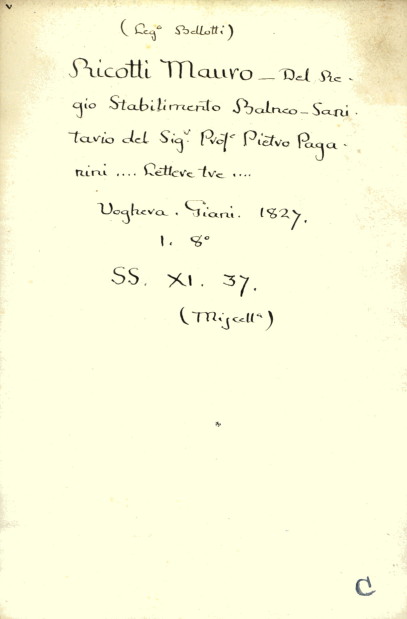 (Leg.° Bellotti)
Ricotti Mauro – Del Re-
gio Stabilimento Balneo-Sani-
tario del Sig.r Prof.e Pietro Paga-
nini .... Lettere tre ....
Voghera. Giani. 1827.
1. 8°
SS. XI. 37.
(Miscell.a)
*
C